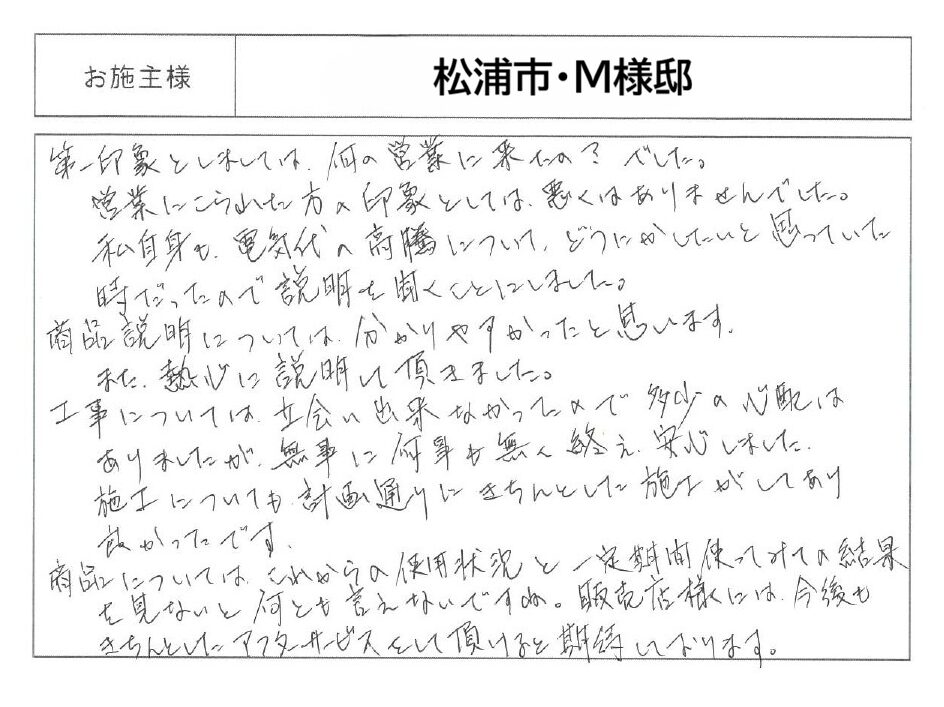 お施主様
松浦市・M様邸
第一印象としましては、何の営業に来たの？でした。
営業にこられた方の印象としては、悪くはありませんでした。
私自身も、電気代の高騰について、どうにかしたいと思っていた
時だったので説明を聞くことにしました。
商品説明については、分かりやすかったと思います。
また、熱心に説明して頂きました。
工事については、立会い出来なかったので多少の心配は
ありましたが、無事に何事も無く終え、安心しました。
施工についても、計画通りにきちんとした施工がしてあり
良かったです。
商品については、これからの使用状況と一定期間使ってみての結果
を見ないと何とも言えないですね。販売店様には、今後も
きちんとしたアフターサービスをして頂けると期待しております。